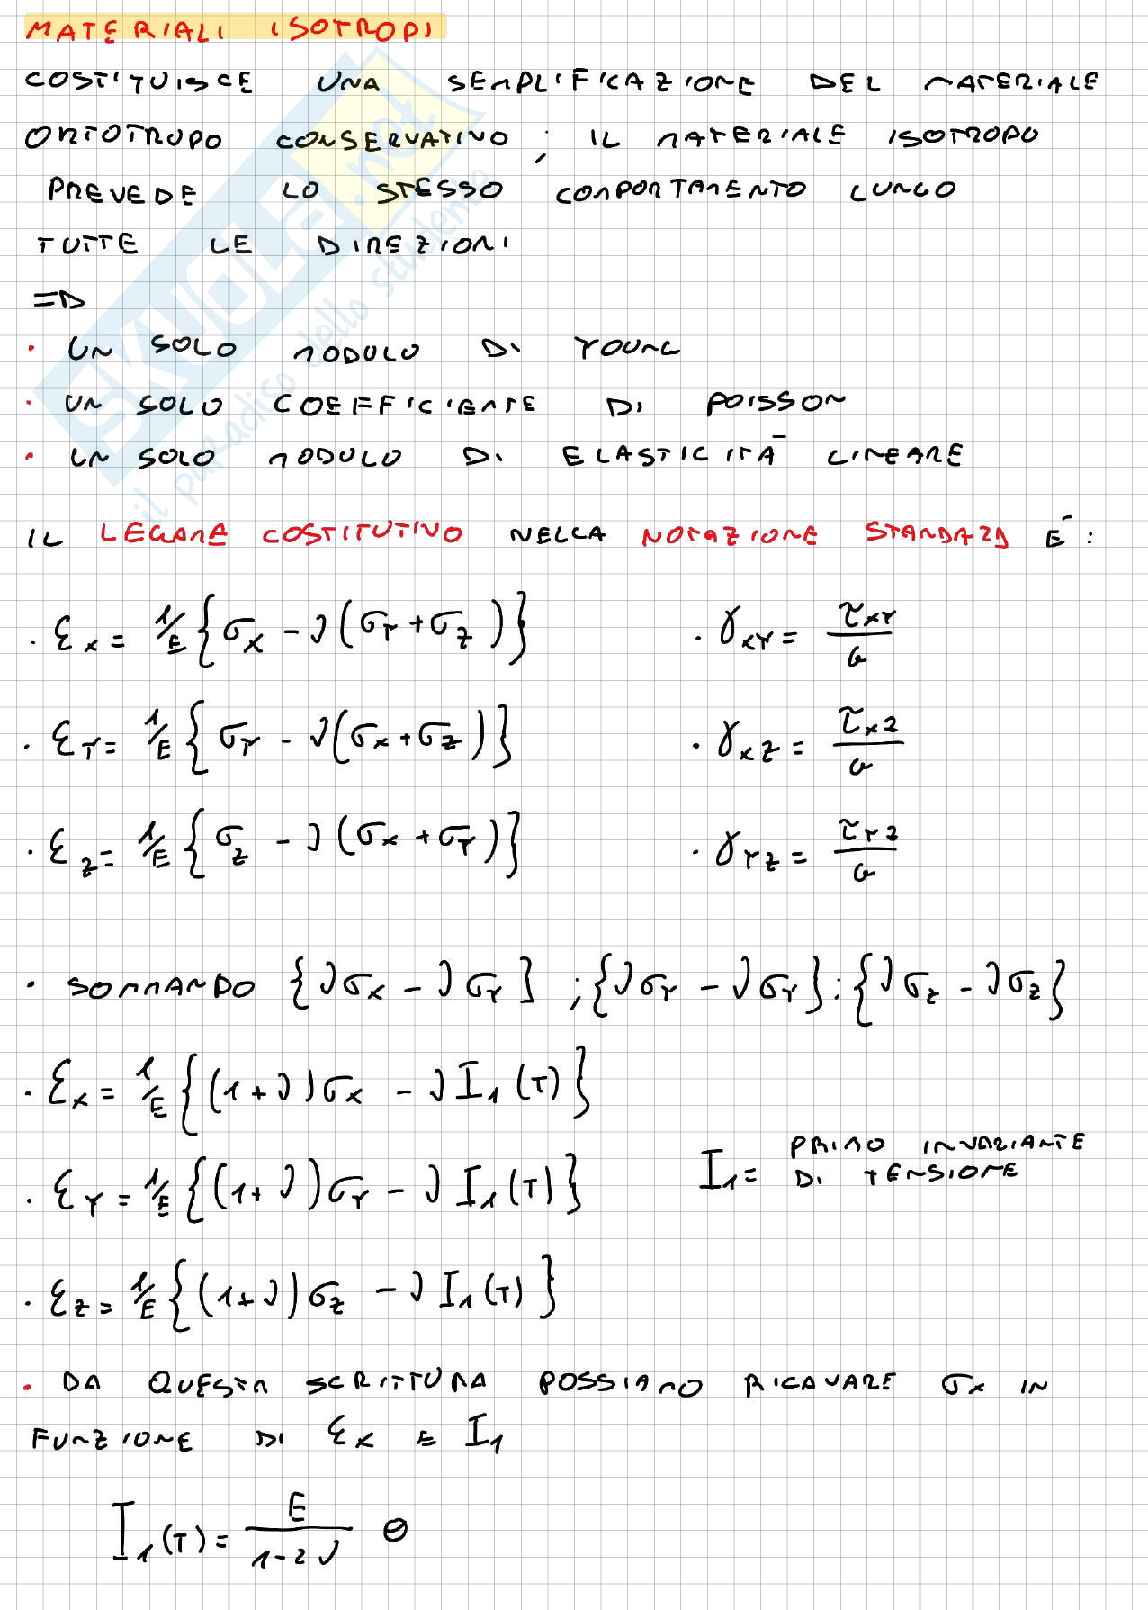 MATERIALI ISOTROPI
COSTITUISCE UNA SEMPLIFICAZIONE DEL MATERIALE
ORTOTROPO CONSERVATIVO ; IL MATERIALE ISOTROPO
PREVEDE LO STESSO COMPORTAMENTO LUNGO
TUTTE LE DIREZIONI
=D
• UN SOLO MODULO DI YOUNG
• UN SOLO COEFFICIENTE DI POISSON
• UN SOLO MODULO DI ELASTICITÀ LINEARE
IL LEGAME COSTITUTIVO NELLA NOTAZIONE STANDARD È :
• εx = 1/E {σx - ν(σY + σz)} • γxY = τxY/G
• εY = 1/E {σY - ν(σx + σz)} • γxz = τxz/G
• εz = 1/E {σz - ν(σx + σY)} • γYz = τYz/G
• SOMMANDO {νσx - νσY} ; {νσY - νσY} ; {νσz - νσz}
• εx = 1/E {(1+ν)σx - ν I1(T)}
• εY = 1/E {(1+ν)σY - ν I1(T)} I1 = PRIMO INVARIANTE DI TENSIONE
• εz = 1/E {(1+ν)σz - ν I1(T)}
• DA QUESTA SCRITTURA POSSIAMO RICAVARE σx IN
FUNZIONE DI εx E I1
I1(T) = E/(1-2ν) Θ
SKUOLA.net
il paradiso dello studente